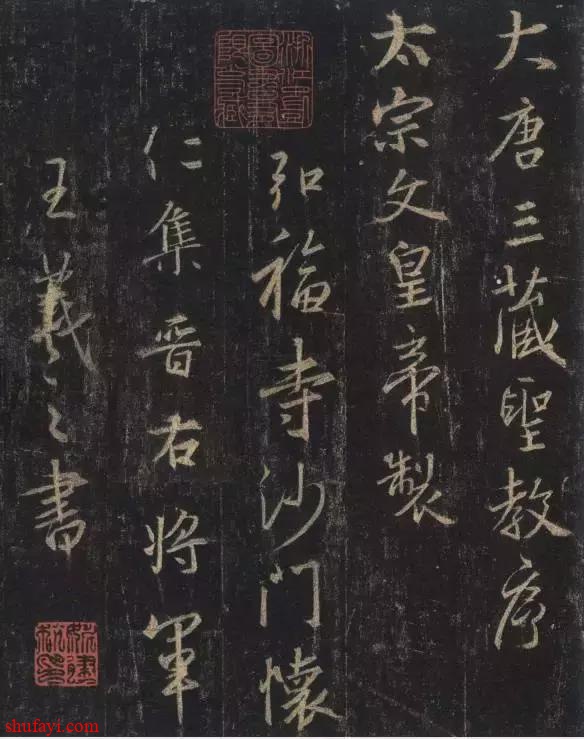 大唐三藏聖教序
太宗文皇帝製
弘福寺沙門懷
仁集晉右將軍
王羲之書
shufayi.com